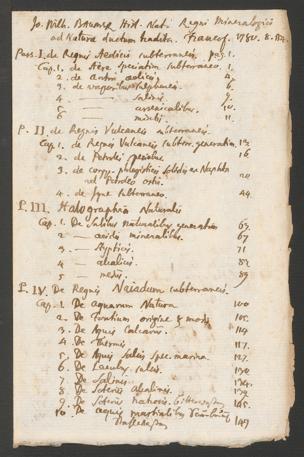 Jo. Wilh. Baumer Hist. Nat. Regni Mineralogici
ad Naturae ductum tradita. Francof. 1780. 8.
Pars. I. de Regnis Aedicis subterraneis. pag. 1.
Cap. 1. de Aëre speciatim subterraneo. 1.
2. de antris aeolicis. 4.
3. de vaporibus 6.
4. — salinis 9.
5. — arsenicalibus. 10.
6. mixtis 11.
P. II. de Regnis Vulcaneis subterraneis.
Cap. 1. de Regnis Vulcaneis subterr. generatim.
2. de Petrolei speciebus 16
3. de corp. phlogisticis solidis ex Naphta
vel Petroleo ortis. 20
4. de igne subterraneo 44.
P. III. Halographia Naturalis
Cap. 1. De Salibus naturalibus generatim 65.
2. — acidis mineralibus. 67
3. — stypticis. 71
4. — alcalicis.
5. — mediis. 89
P. IV. De Regnis Naiadum subterraneis.
Cap. 1. De aquarum Natura 100
2. De Fontium origine & modis 105.
3. De Aquis Calcariis. 114
4. De Thermis 117.
5. De Aquis Salsis spec. marina 127.
6. De Lacubus salsis. 130
7. De Salinis.
8. De Soteriis alcalinis.
9. De Soteriis natrosis, 145.
10. De aquis martialibus 149